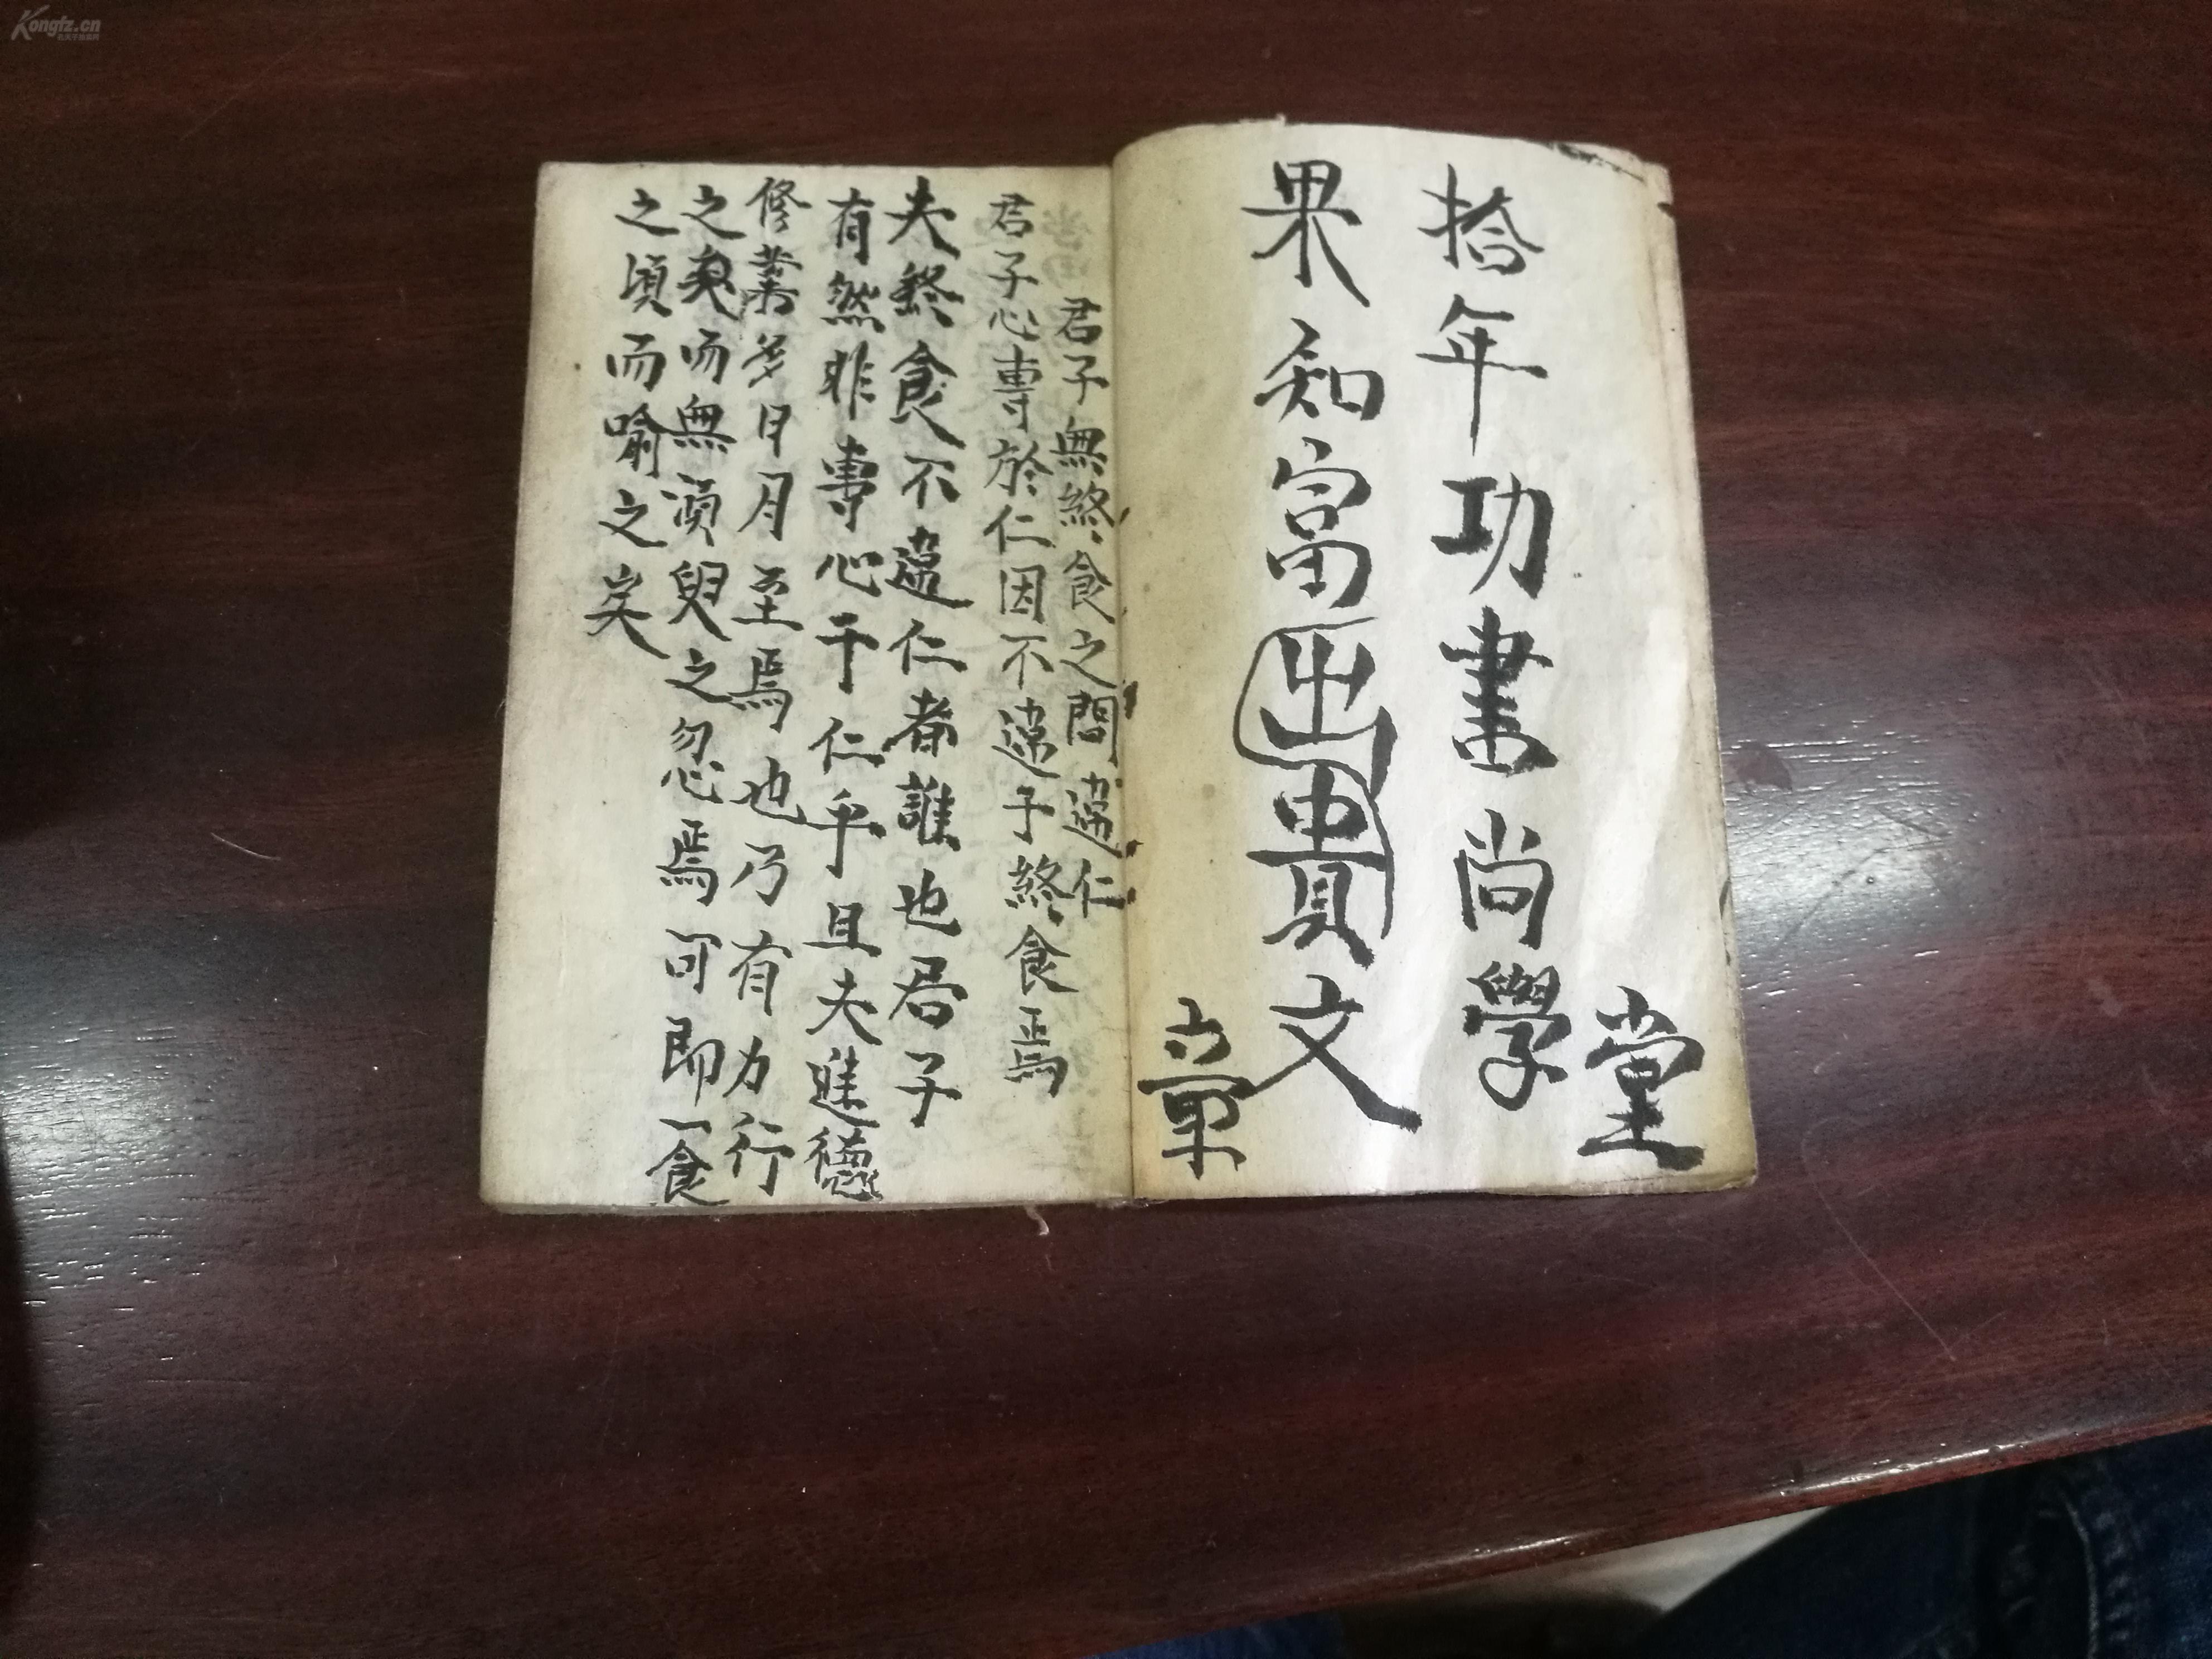 Kongfz.cn
拾年功書尚學
堂
果知富出貴文
章
君子無終食之間違仁
君子心專於仁因不違于終食焉
夫終食不違仁者誰也君子
有然非專心于仁乎且夫進德
修業多日月至焉也乃有力行
之矣而無須臾之忽焉可即一食
之頃而喻之矣